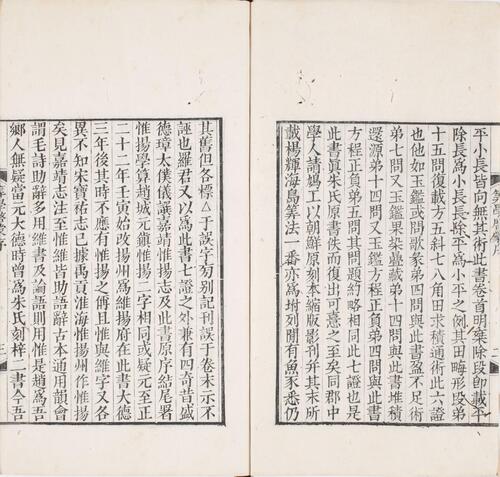 平小長皆向無其術此書卷首明乘除段即載平
除長爲小長長除平爲小平之例其田畮形段弟
十五問復載方五斜七八角田求積通術此六證
也他如玉鑑或問歌彖弟四問與此書盈不足術
弟七問又玉鑑果垜疊藏弟十四問與此書堆積
還源弟十四問又玉鑑方程正負弟四問與此書
方程正負弟五問其問題約略相同此七證也是
此書眞朱氏原書佚而復出可憙之至矣同郡中
學人請鳩工以朝鮮原刻本縮版影刊并其末所
載楊輝海島筭法一番亦爲坿列閒有魚豕悉仍
其舊但各標△于誤字旁別記刊誤于卷末示不
誣也羅君又以爲此書七證之外兼有四奇昔盛
德璋太僕儀議嘉靖惟揚志及此書原序結尾署
惟揚學算趙城元鎭惟揚二字相同或疑元至正
二十二年壬寅始改揚州爲維揚府在此書大德
三年後其時不應有惟揚之偁且惟與維字又各
異不知宋寶祐志已據禹貢淮海惟揚州作惟揚
矣見嘉靖志注至惟維皆助語辭古本通用韻會
謂毛詩助辭多用維書及論語則用惟是趙爲吾
鄉人無疑當元大德時曾爲朱氏刻梓二書今吾